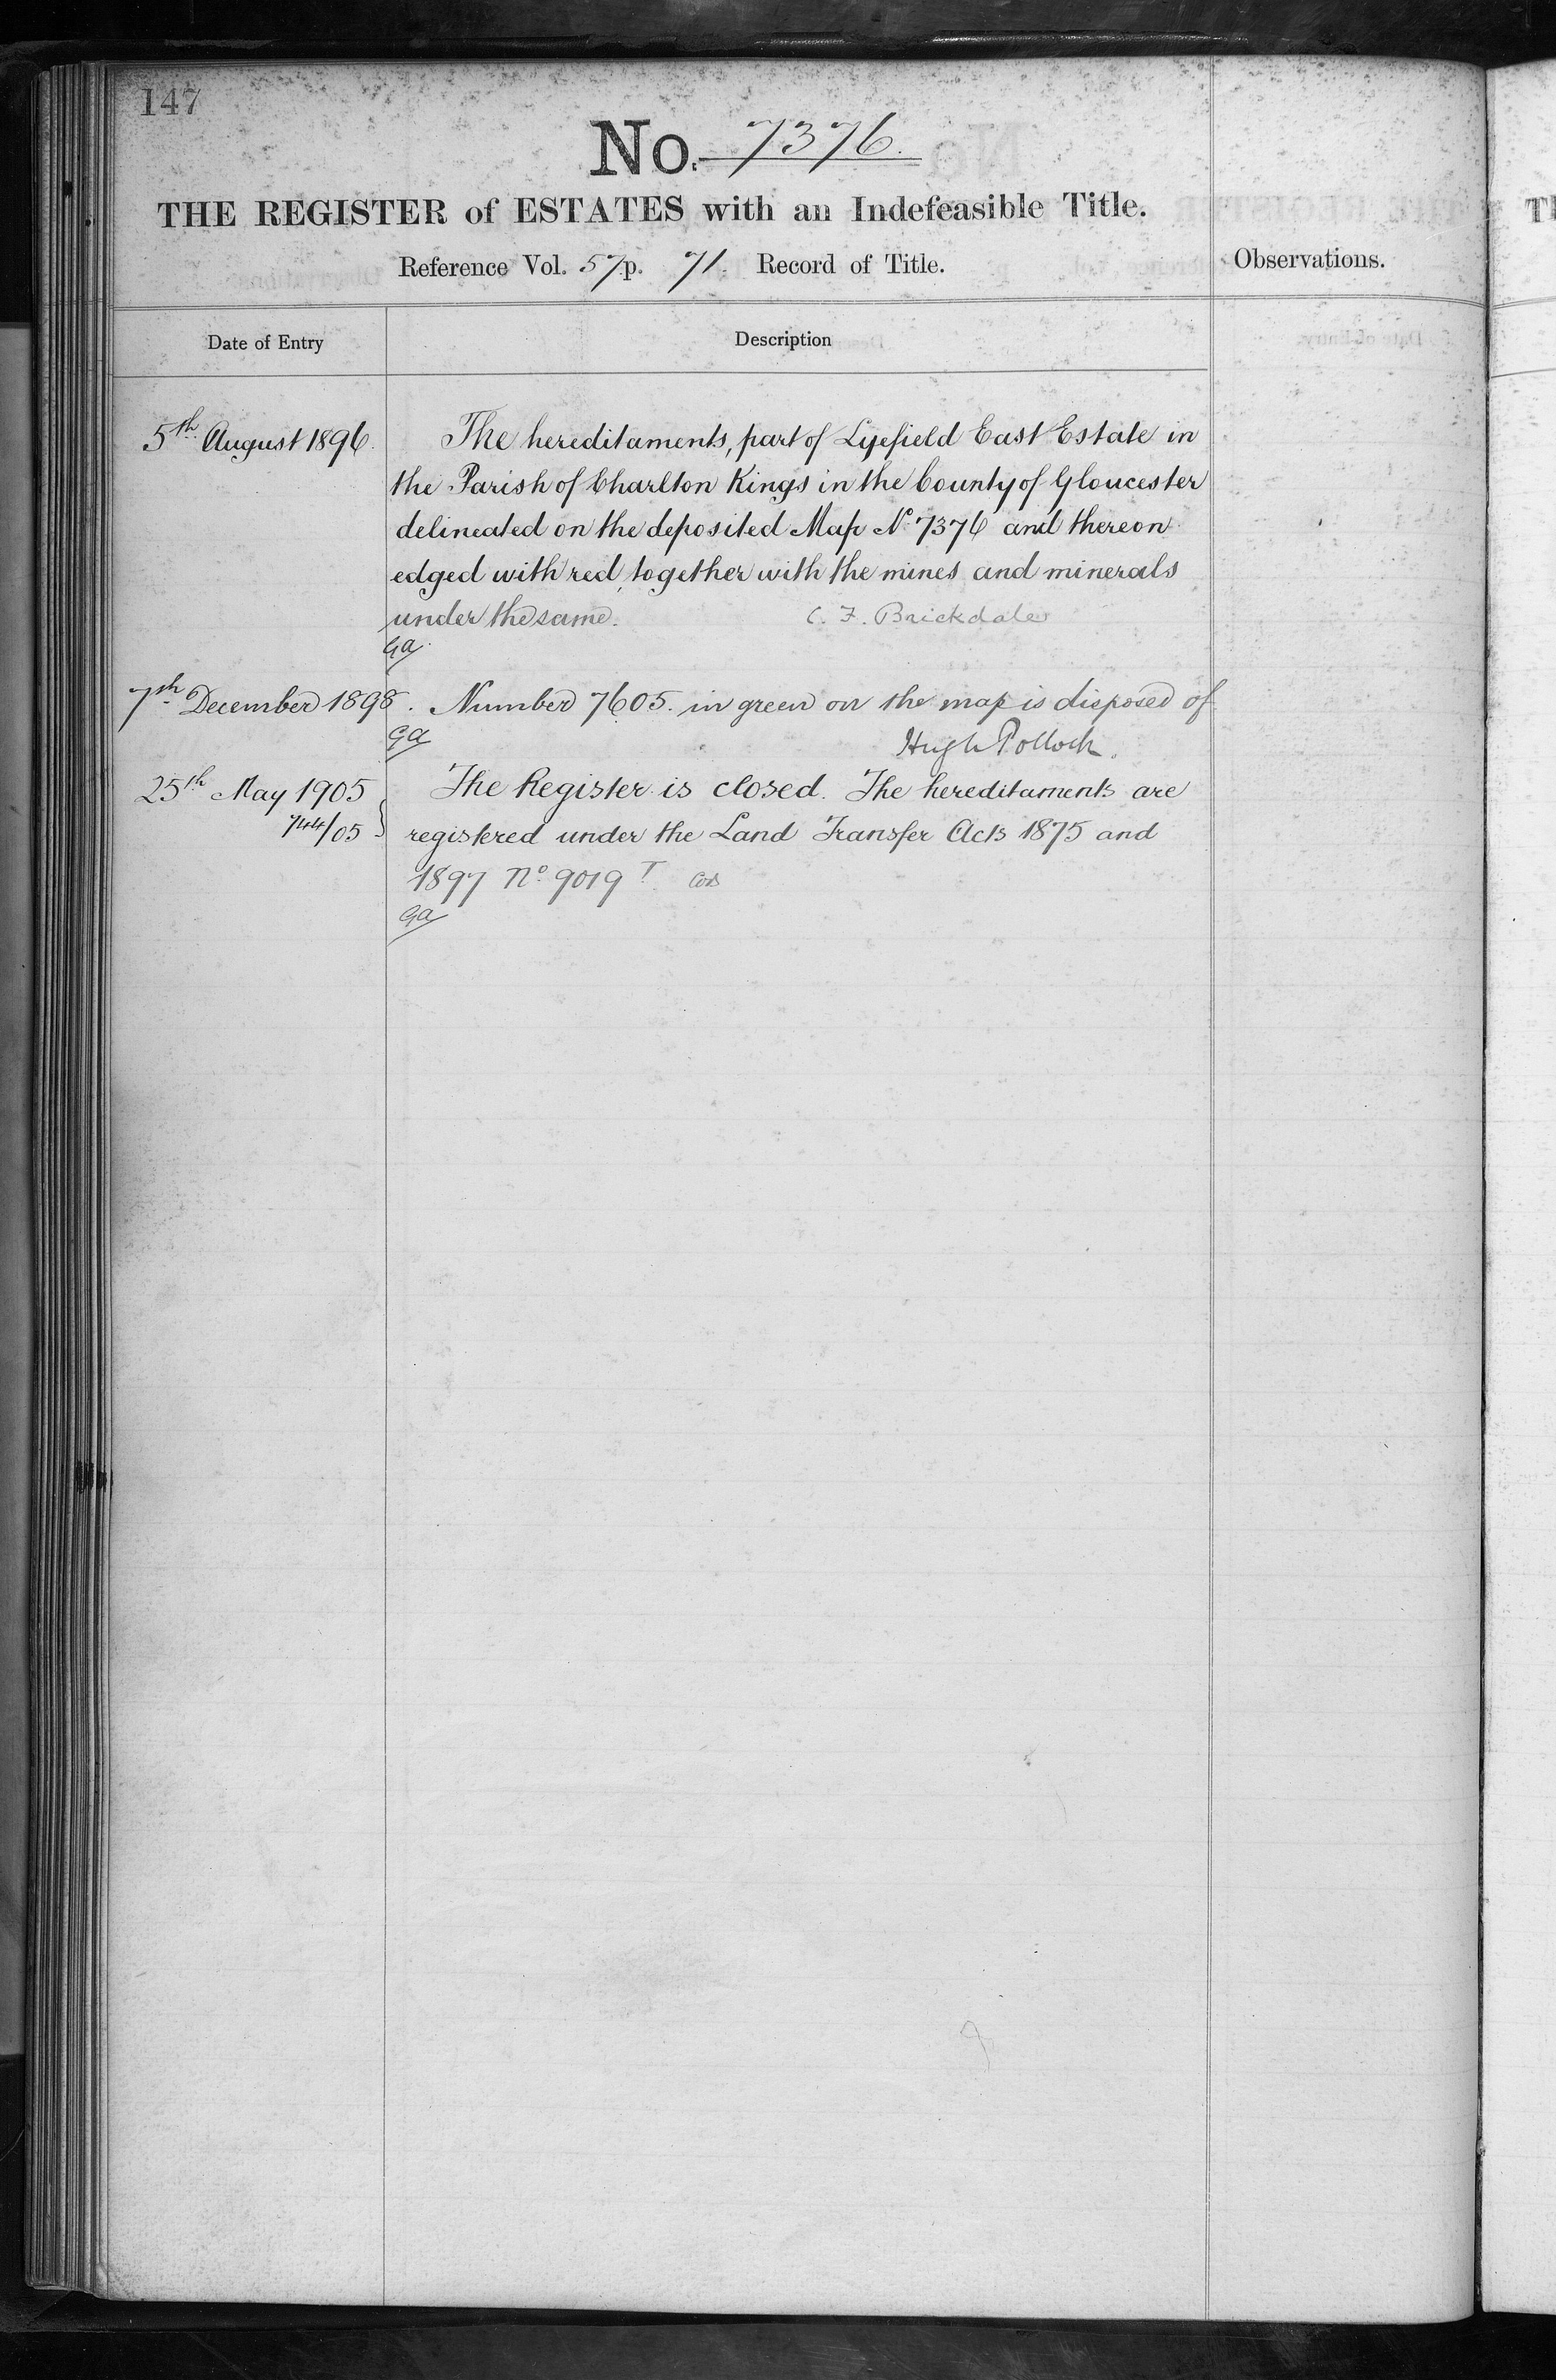 147
No. 7376.
THE REGISTER of ESTATES with an Indefeasible Title.
Reference Vol. 57 p. 71. Record of Title.
Observations.
Date of Entry
Description
5th August 1896.
The hereditaments, part of Lyefield East Estate in
the Parish of Charlton Kings in the County of Gloucester
delineated on the deposited Map No 7376 and thereon
edged with red, together with the mines and minerals
under the same. C. F. Brickdale
GA
7th December 1898. Number 7605. in green on the map is disposed of
GA Hugh Pollock.
25th May 1905 The Register is closed. The hereditaments are
744/05 } registered under the Land Transfer Acts 1875 and
1897 No 9019 T
GA